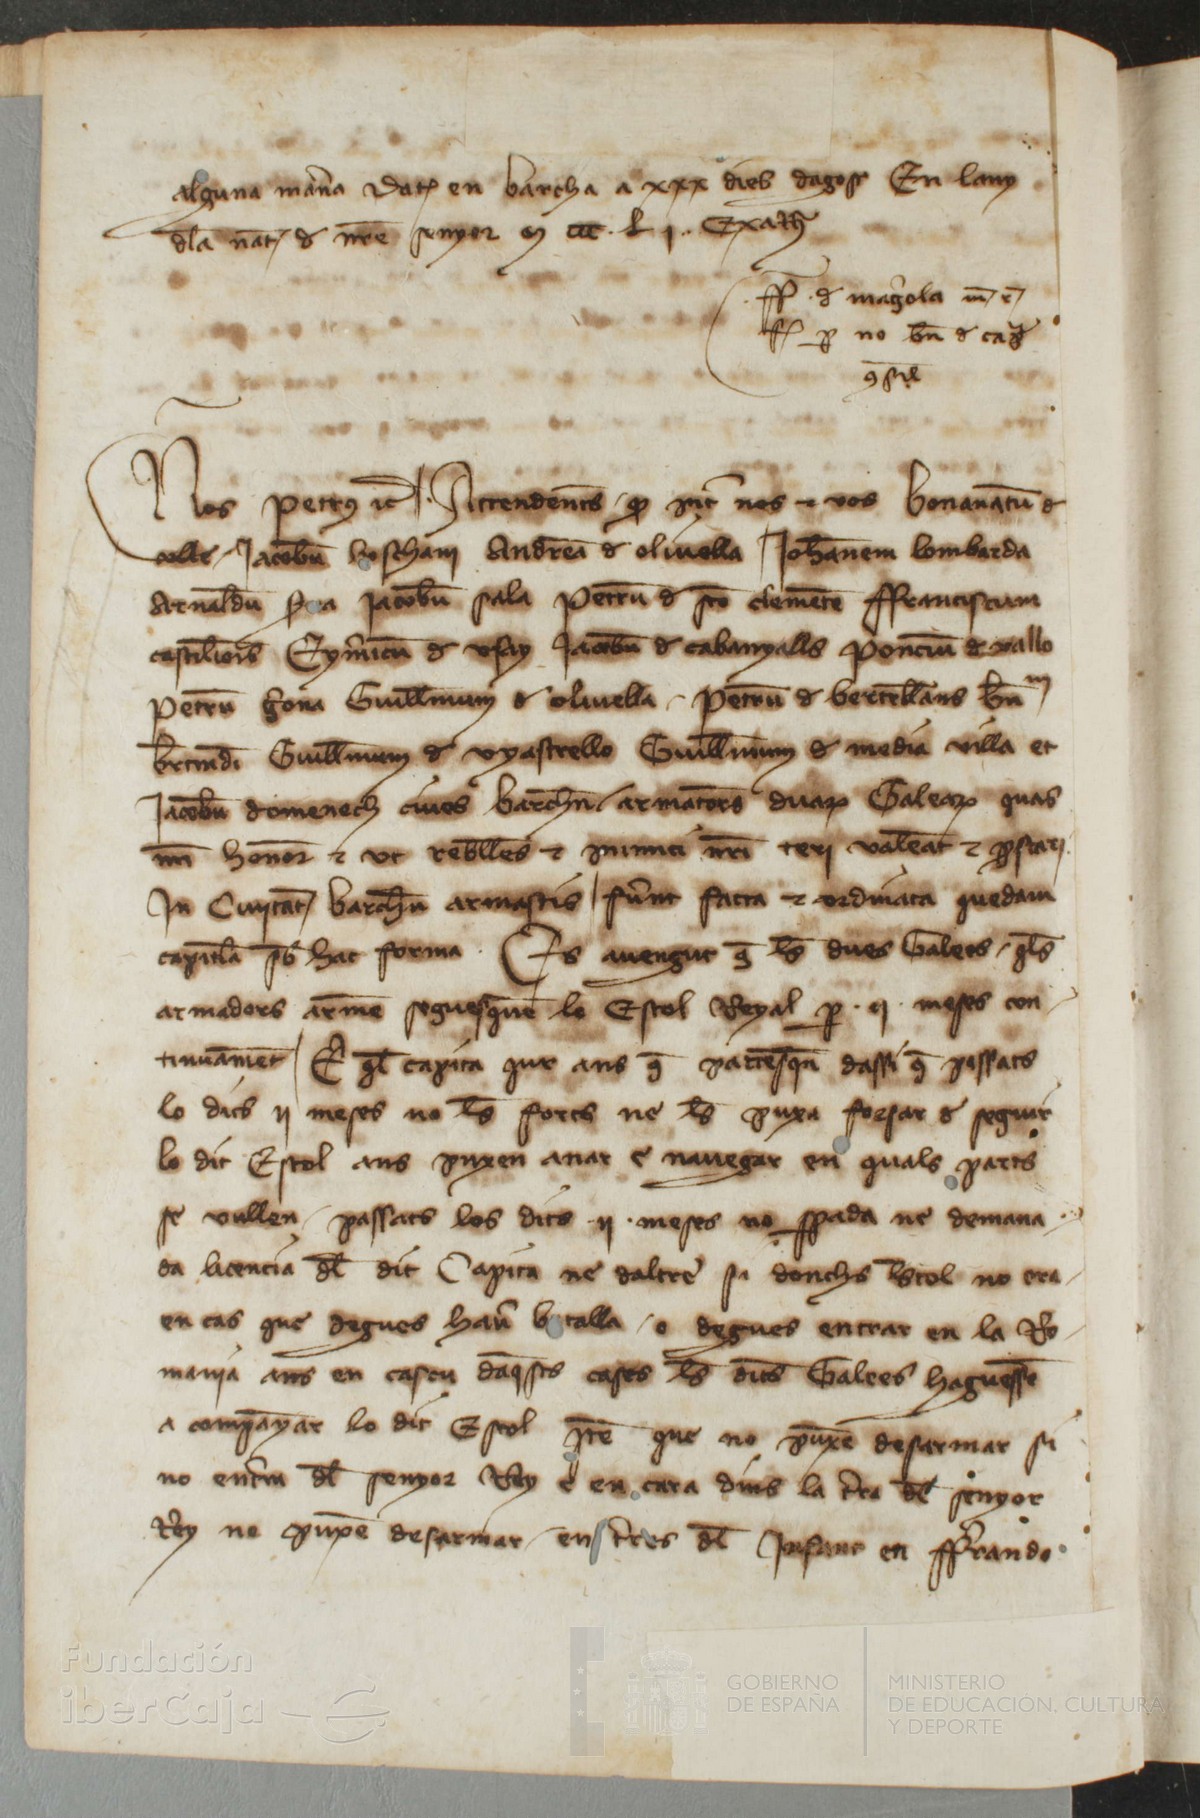 alguna mana Dat en barcha a xxx dies dagost En lany
dla nat d nre senyor m ccc. L j.. Exath
ff. d magola
ff p no bn d
Nos Petrus ic. Attendents int nos et vos bonanatu d
colle Jacobu boscham Andrea d olivella Johanem lombarda
Arnaldu Jacobu sala Petru d sco clemete ffranciscum
castilions Eymicu d usay Jacobu d cabanyalls Ponciu d vallo
Petru Guillmum d olivella Petru d bertrellans bn
Guillmum d vyastrello Guillmum d media villa et
Jacobu domenech cives barchn armators duar Galear quas
nri honor et ut reblles et inimici nri teri valeat et
In Civitat barchn armastis fuint facta et ordinata quedam
capitla sb hac forma Es avengut q ls dues Galees qls
armadors arme seguesquen lo Estol Reyal p .ij. meses con
tinuament E ql capita que ans q partesqn dassi q passats
lo dits ij meses no ls forts ne ls puxa forsar d seguir
lo dit Estol ans puxen anar e navegar en quals parts
se vullen passats los dits .ij. meses no spada ne demana
da licencia dl dit Capita ne daltre si donchs lstol no era
en cas que degues hav batalla o degues entrar en la Ro
mania ans en cascu daqsts cases ls dits Galees haguesse
a companyar lo dit Estol Ite que no puxe desarmar si
no entra dl senyor Rey e en cara dins la tra dl senyor
Rey no puxe desarmar en tres dl Infant en ffrando
Fundación
iberCaja
GOBIERNO
DE ESPAÑA
MINISTERIO
DE EDUCACIÓN, CULTURA
Y DEPORTE